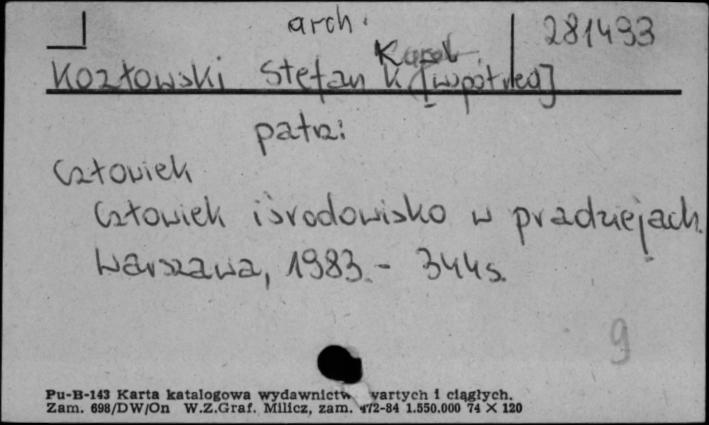 arch. 281493
Karol
Kozłowski Stefan K. [współred]
patrz:
Człowiek
Człowiek i środowisko w pradziejach.
Warszawa, 1983. - 344 s.
9
Pu-B-143 Karta katalogowa wydawnictw wartych i ciągłych.
Zam. 698/DW/On W.Z.Graf. Milicz, zam. 472-84 1.550.000 74 X 120